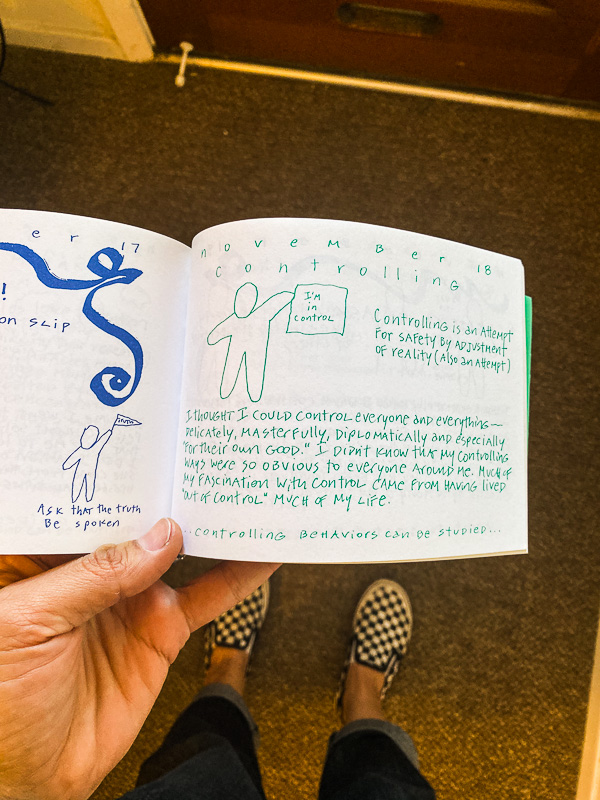 er 17
!
on slip
truth
Ask that the truth
Be spoken
November 18
Controlling
I'm
in
control
Controlling is an Attempt
For safety by adjustment
of reality (Also an Attempt)
I thought I could control everyone and everything—
Delicately, Masterfully, Diplomatically and especially
"For their own good." I didn't know that my controlling
ways were so obvious to everyone around me. Much of
my fascination with control came from having lived
"out of control" much of my life.
..controlling Behaviors can be studied...